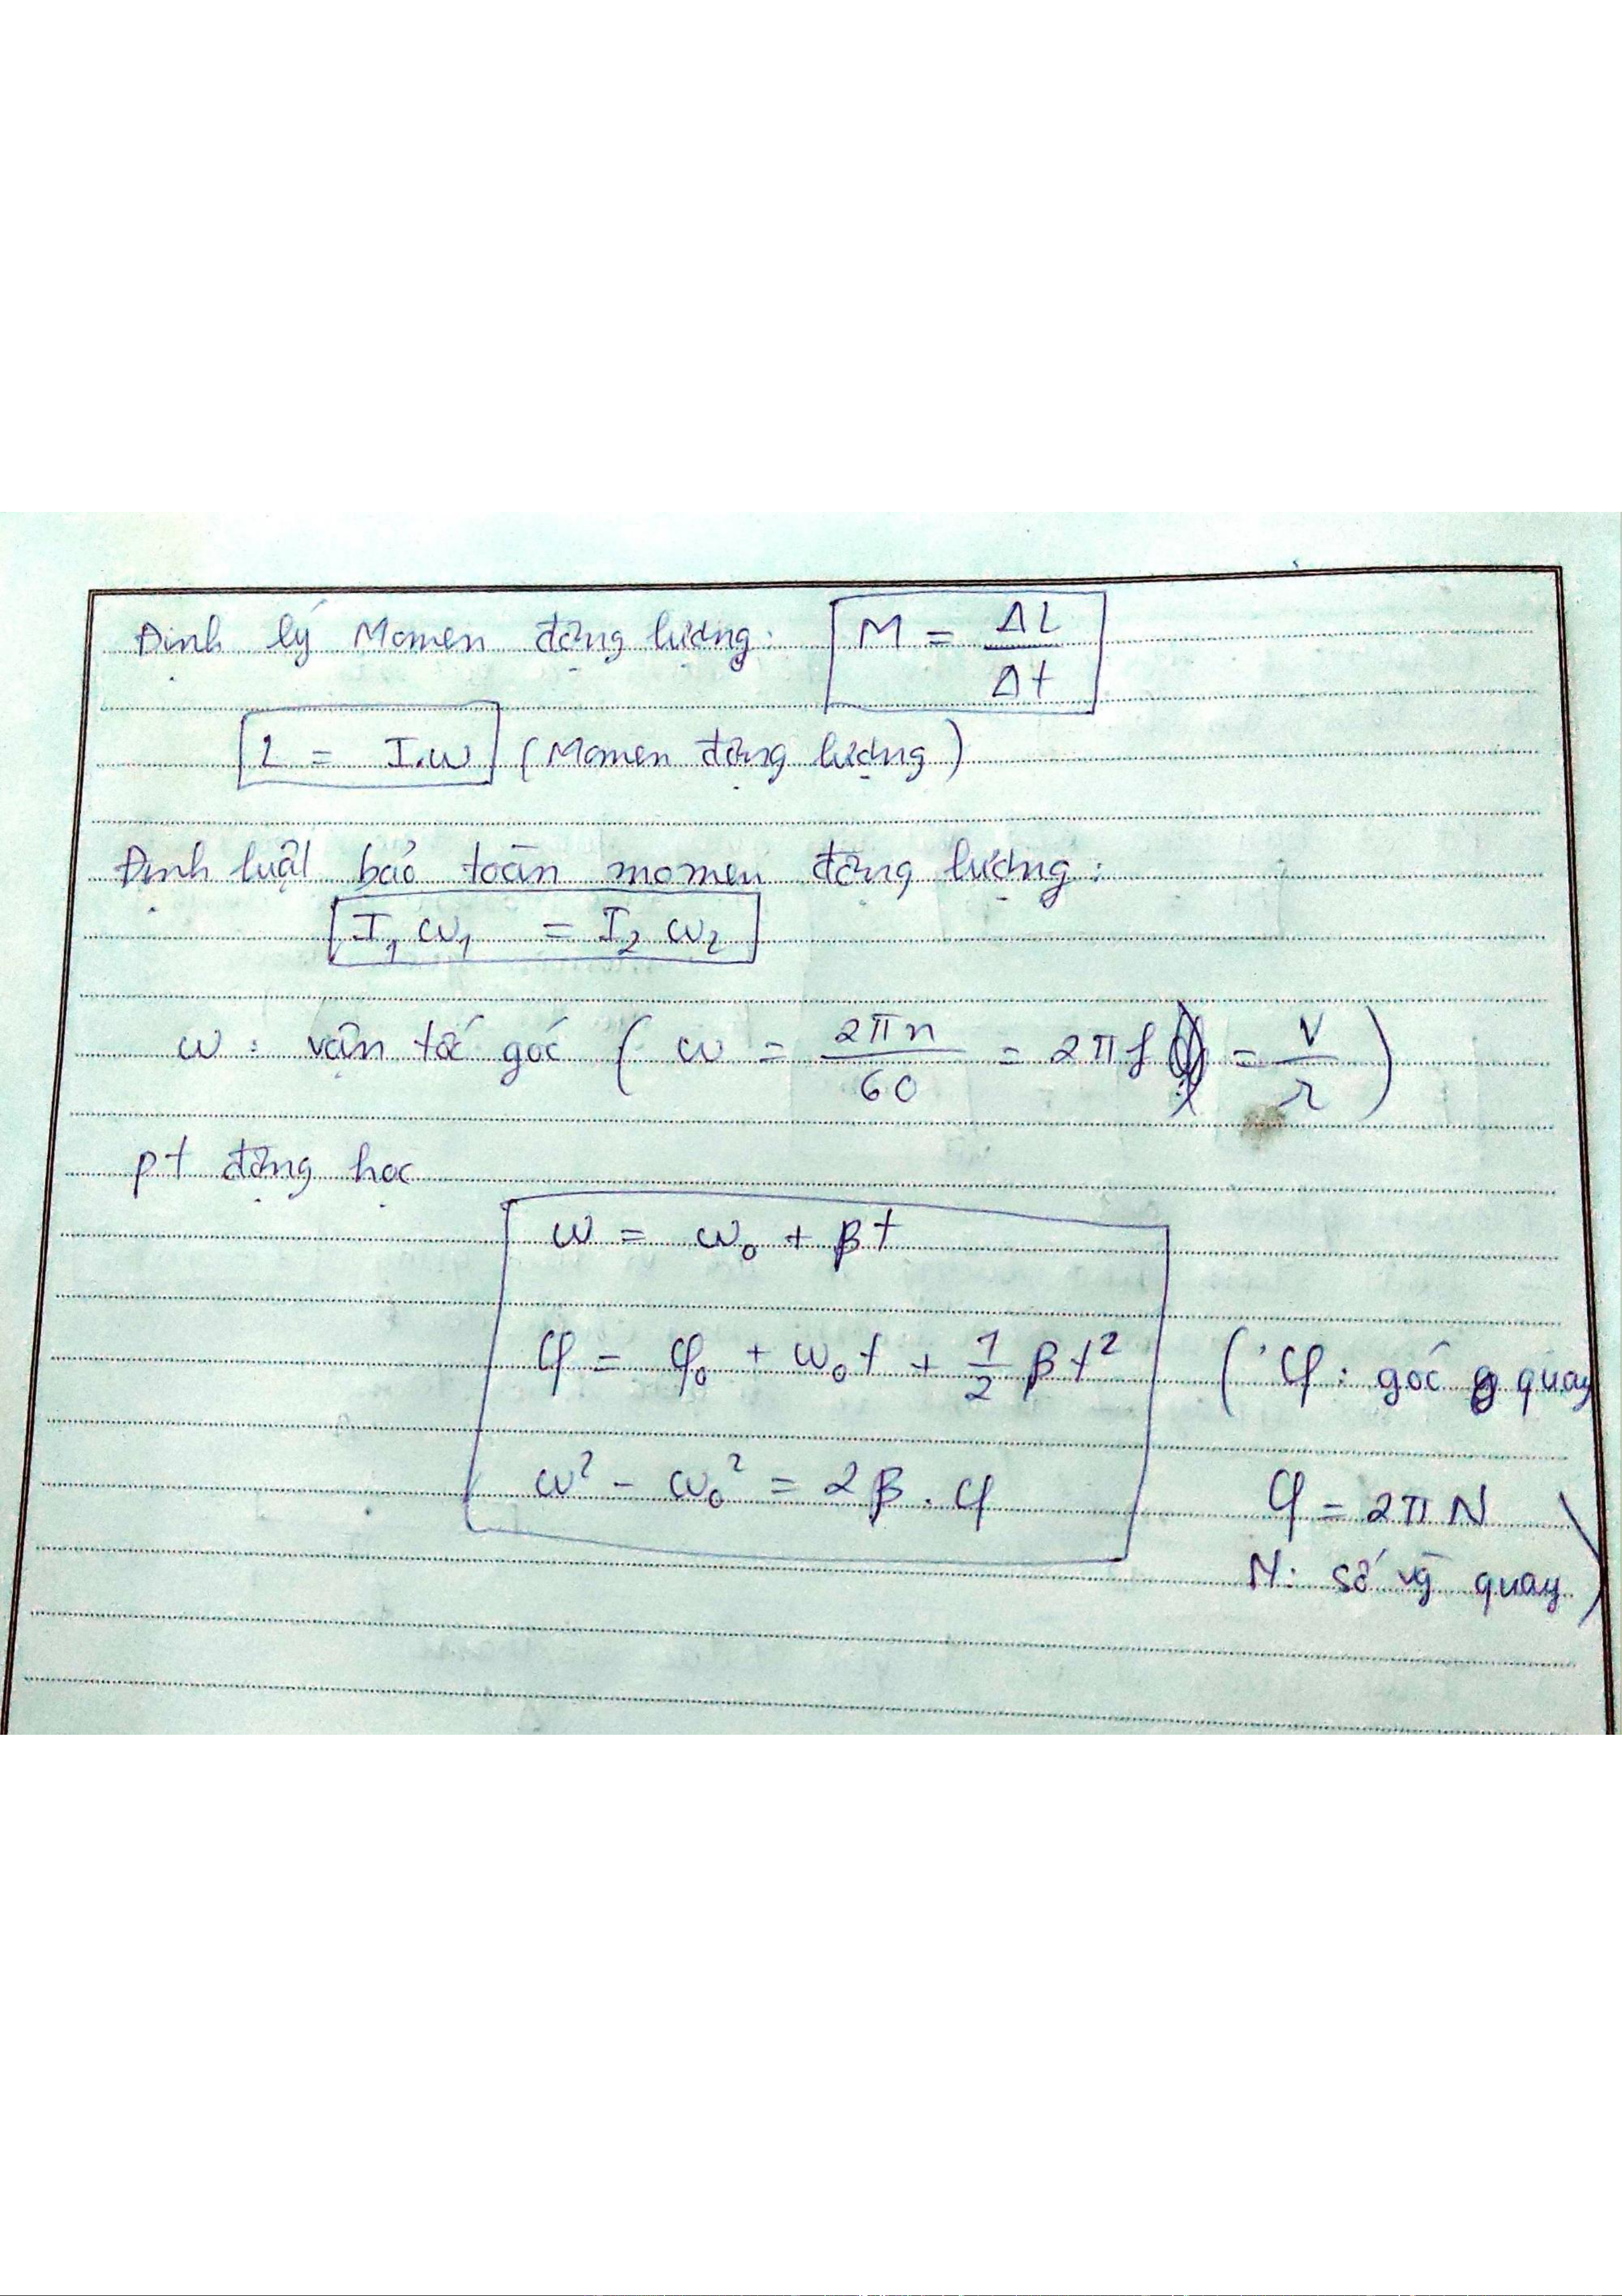 Định lý Momen động lượng: M = ΔL/Δt
L = I.ω (Momen động lượng)
Định luật bảo toàn momen động lượng:
I₁ ω₁ = I₂ ω₂
ω: vận tốc góc ( ω = 2πn/60 = 2πf = v/r )
pt động học
ω = ω₀ + βt
φ = φ₀ + ω₀t + 1/2 βt² ( φ: góc quay
ω² - ω₀² = 2β.φ φ = 2πN
N: số vg quay )